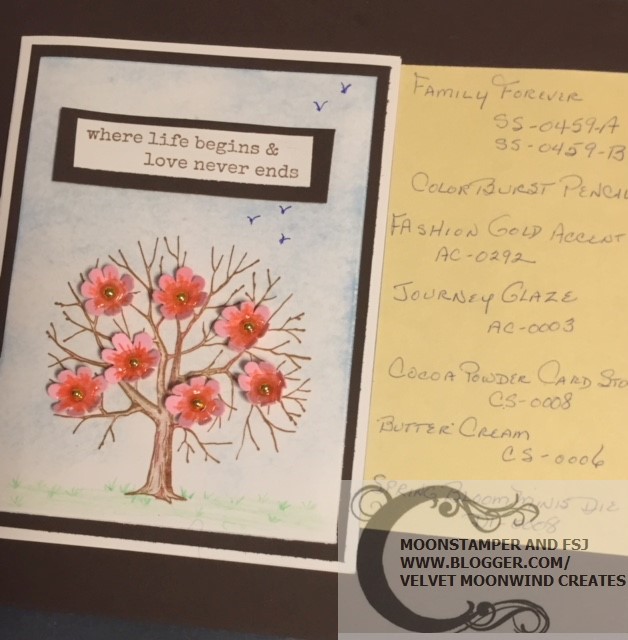 where life begins &
love never ends
FAMILY FOREVER
SS-0459-A
SS-0459-B
COLORBURST PENCIL
FASHION GOLD ACCENT
AC-0292
JOURNEY GLAZE
AC-0003
COCOA POWDER CARD STO
CS-0008
BUTTER CREAM
CS-0006
SPRING BLOOM MINIS DIE
0008
MOONSTAMPER AND FSJ
WWW.BLOGGER.COM/
VELVET MOONWIND CREATES